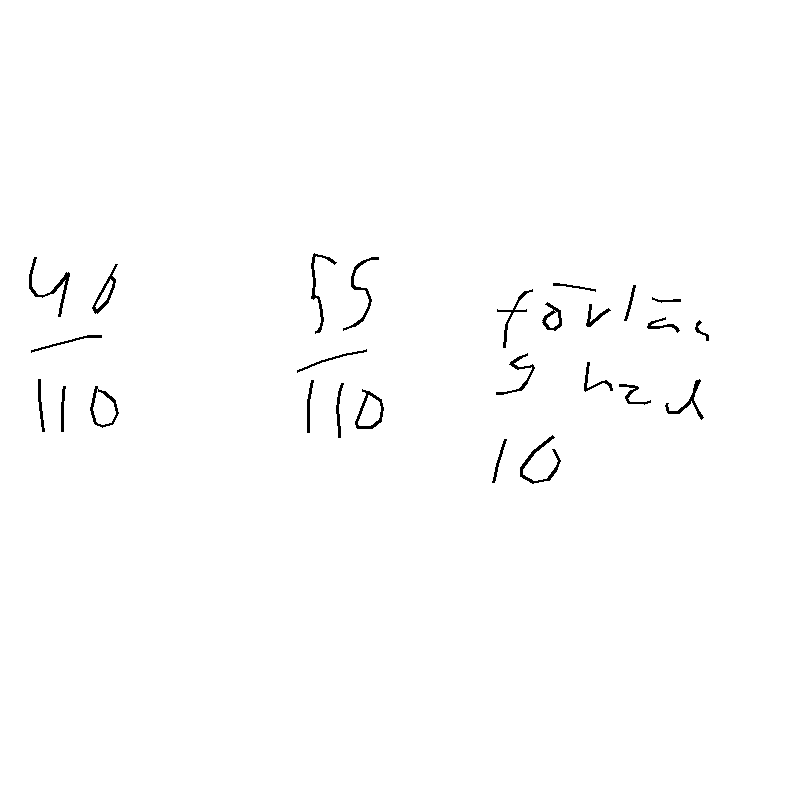 40
110
55
110
förlän
g med
10